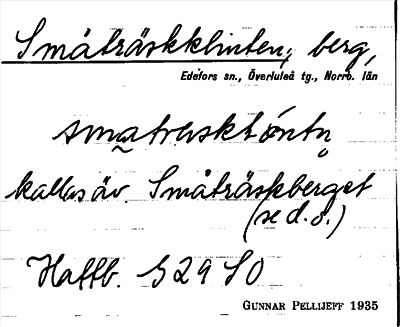 Småträskklinten, berg,
Edefors sn., Överluleå tg., Norrb. län
kallas äv. Småträskberget
(se d. o.)
Häftb. 529 SO
GUNNAR PELLIJEFF 1935